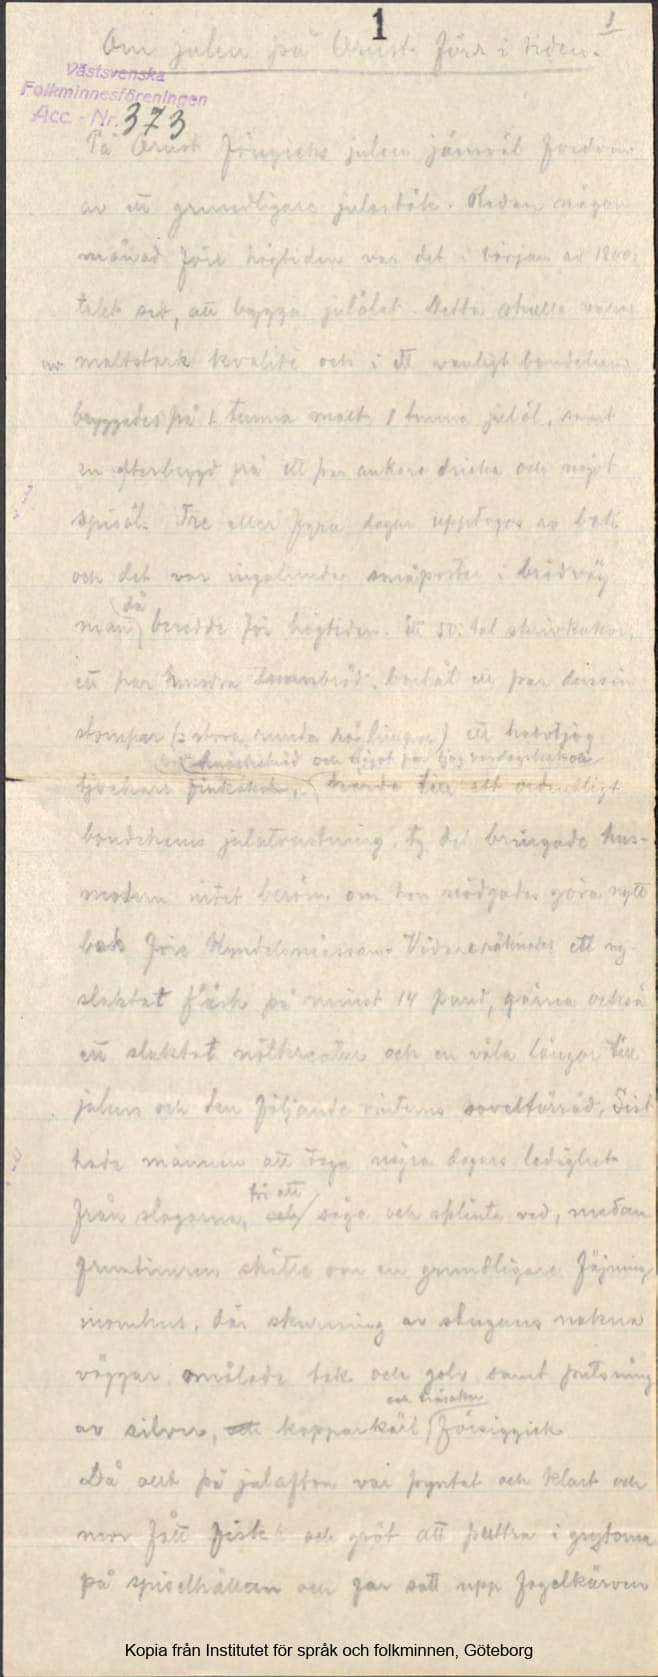 1
1
Om julen på Orust förr i tiden.
Västsvenska
Folkminnesföreningen
Acc. - Nr. 373
På Orust föregicks julen jämväl fordom
av ett grundligare julastök. Redan någon
månad före högtiden var det i början av 1800
talet sed, att brygga julölet. Detta skulle vara
av maltstark kvalité och i ett vanligt bondehem
bryggdes på 1 tunna malt 1 tunna julöl, samt
en efterbrygd på ett par ankare dricka och något
spisöl. Tre eller fyra dagar upptogos av bak
och det var ingalunda småposter i brödväg
man då beredde för högtiden. Ett 50 tal skivkakor,
ett par hundra tunnbröd, bortåt ett par dussin
stompar (: stora runda limpor) ett
knäckebröd och något par tjog vardagskakor
hörde till ett ordentligt
bondehems julutrustning, ty det bringade hus-
modern intet beröm om hon nödgades göra nytt
bak före Kyndelsmässan. Vidare ett ny-
slaktat fläsk på minst 14 pund, gärna också
ett slaktat nötkreatur och en våla långor till
julens och den följande vinterns sovelförråd. Sist
hade männen att taga några dagars ledighet
från slogorna, för att såga och splinta ved, medan
fruntimren skötte om en grundligare fäjning
inomhus, där skurning av stugans nakna
väggar, omålade tak och golv samt putsning
av silver, kopparkärl och träsaker försiggick
Då allt på julafton var pyntat och klart och
mor fått fisk och gröt att puttra i grytorna
på spiselhällan och far satt upp fogelkärven
Kopia från Institutet för språk och folkminnen, Göteborg